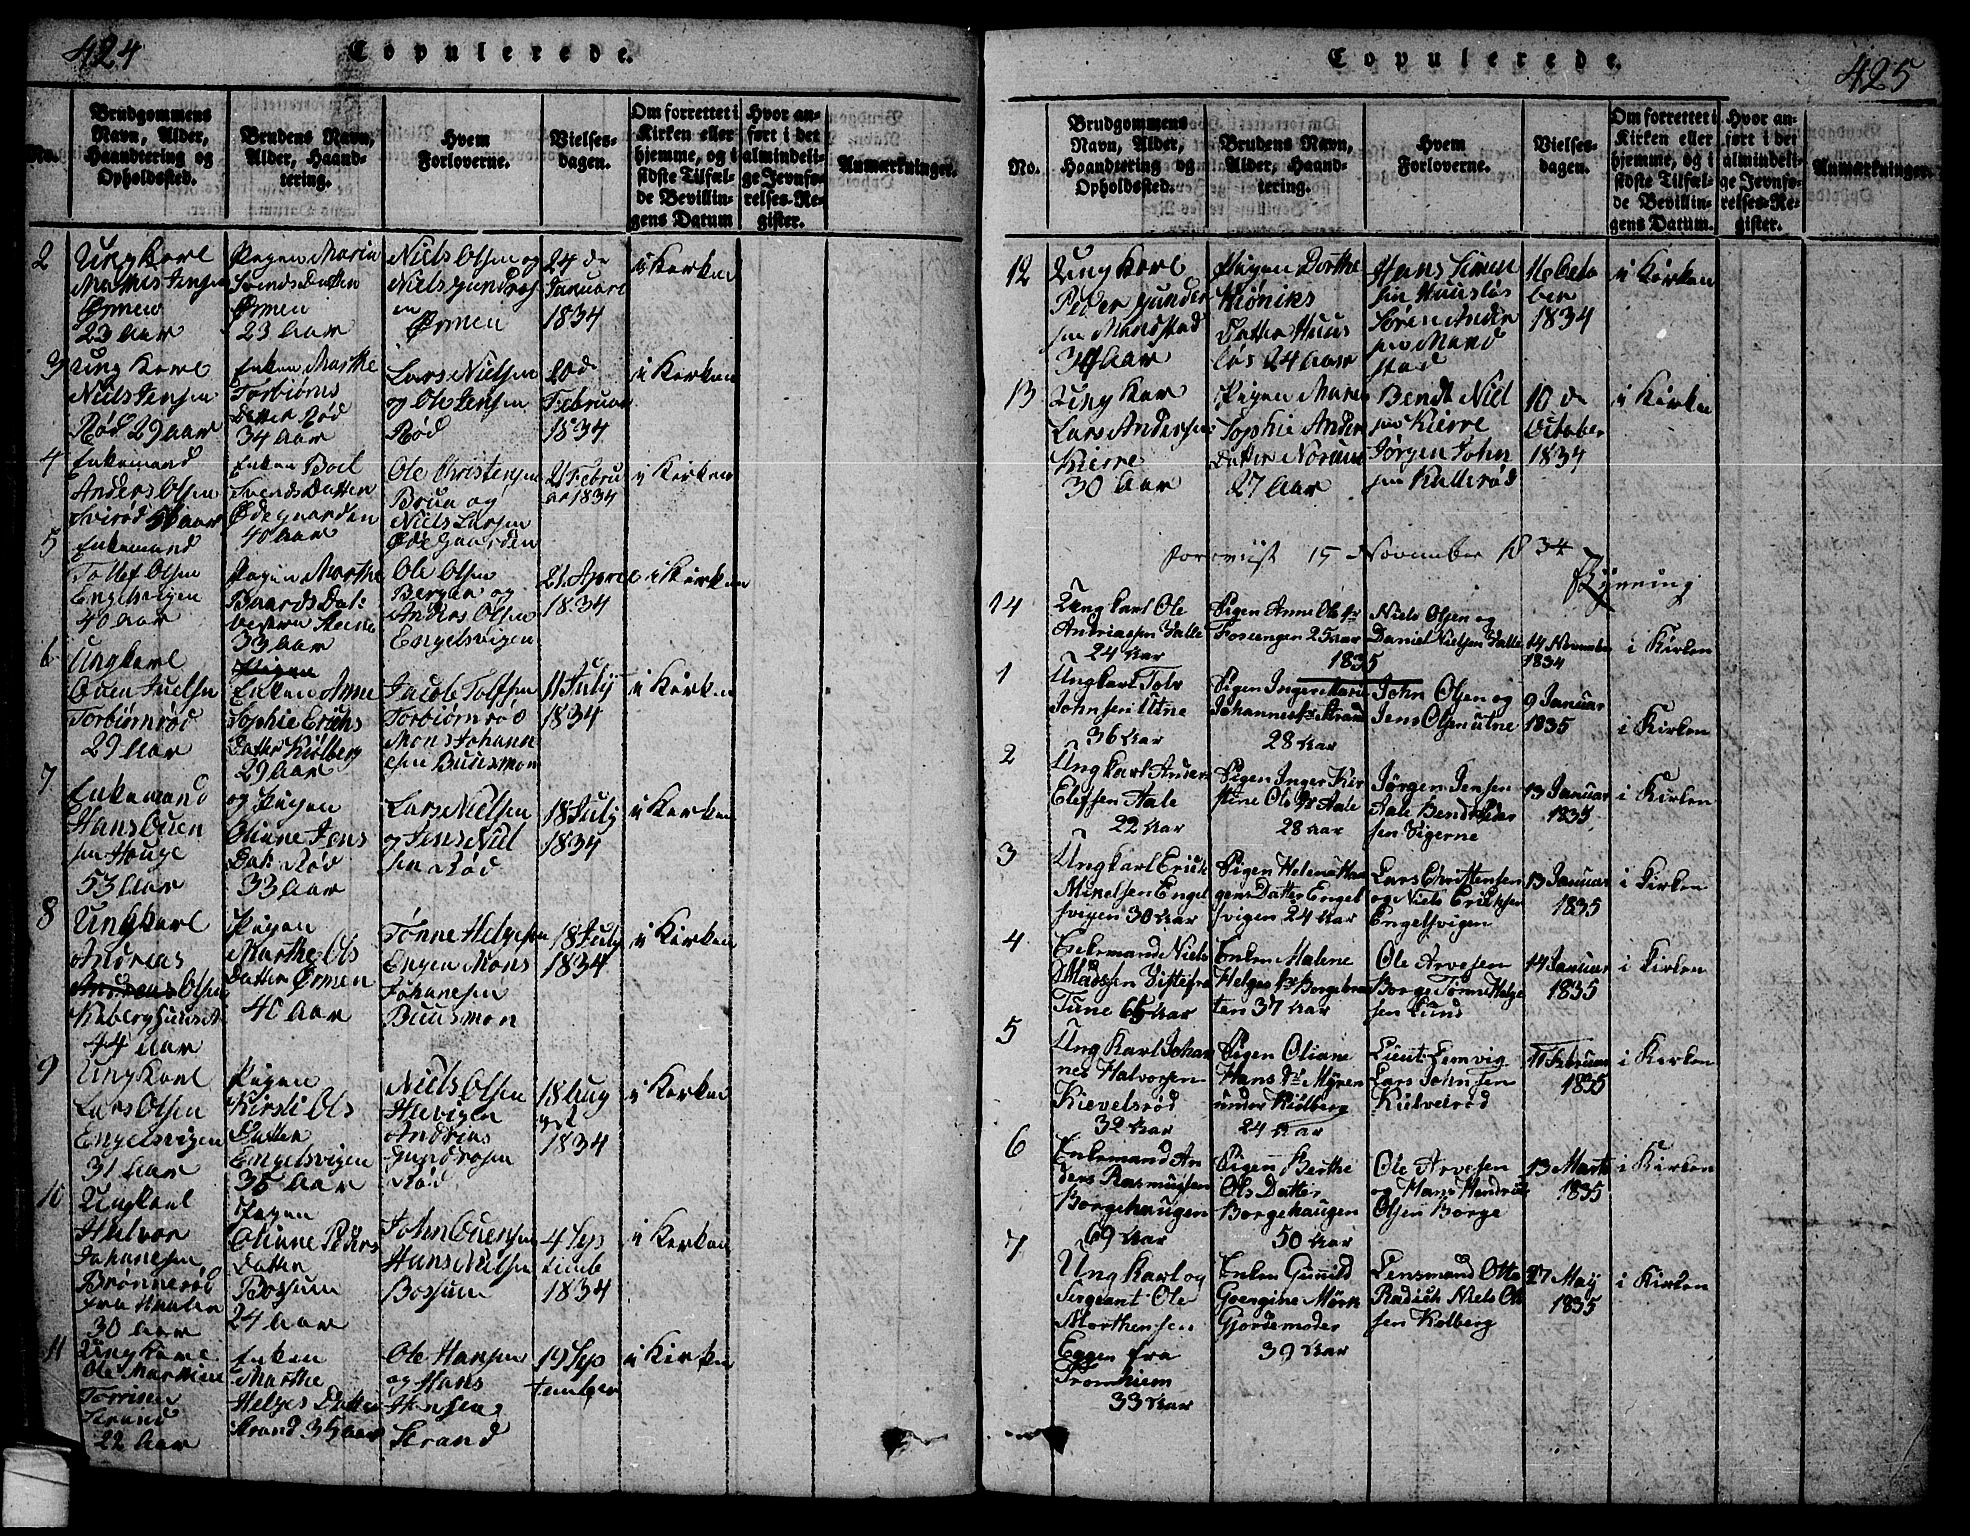 424
Copulerede.
No.
Brudgommens
Navn, Alder,
Haandtering og
Opholdssted.
Brudens Navn,
Alder, Haand-
tering.
Hvem
Forloverne.
Vielses-
dagen.
Om forrettet i
Kirken eller
hjemme, og i
sidste Tilfæl-
de Bevillin-
gens Datum
Hvor an-
ført i det
almindeli-
ge Jevnfø-
relses-Re-
gister.
Anmærkninger.
2
Ung Karl
Mathis Jensen
Ørmen
23 Aar
Pigen Maria
Svends Datter
Ørmen
23 Aar
Niels Olsen og
Niels Gundros
en
Ørmen
24 de
Januari
1834
i Kirken
3
Ung Karl
Niels Jensen
Rød 29 Aar
Enken Marthe
Torbiørns
Datter Rød
34 Aar
Lars Nielsen
og Ole Jensen
Rød
Februar
1834
i Kirken
4
Enkemand
Anders Olsen
Enken Boel
Svends Datter
Ødegaarden
40 Aar
Ole Christensen
Brua og
Niels Larsen
Ødegaarden
21 Febru
ar 1834
i Kirken
5
Enkemand
Tollef Olsen
Engelsvigen
40 Aar
Pigen Marthe
Baards Dat:
33 Aar
Ole Olsen
Bergen og
Anders Olsen
Engelsvigen
21 April
1834
i Kirken
6
Ung Karl
Ouen Juelsen
Torbiørnrød
29 Aar
Enken Anne
Sophie Erichs
Datter Kiølberg
29 Aar
Jacob Tolfsen
Torbiørnrød
Mons Johann
esen Buusmon
11 July
1834
i Kirken
7
Enkemand
Hans Ouen
sen Houge
53 Aar
og Pigen
Oliane Jens
Dat: Rød
33 Aar
Lars Nielsen
og Jens Niel
sen Rød
18 July
1834
i Kirken
8
Ung Karl
Andreas
Olsen
44 Aar
Pigen
Marthe Ols
Datter Ørmen
40 Aar
Tønne Helgesen
Engen Mons
Johanesen
Buusmon
18 July
1834
i Kirken
9
Ung Karl
Lars Olsen
Engelsvigen
31 Aar
Pigen
Kirsti Ols
Datter
Engelsvigen
35 Aar
Niels Olsen
Andrias
Gundrosen
Rød
18 Aug
ust
1834
i Kirken
10
Ung Karl
Halvor
Johanesen
Brønnerød
30 Aar
Pigen
Oliane Peders
Datter
Bossum
24 Aar
John Ouensen
Hans Nielsen
Bossum
4 Sep
1834
i Kirken
11
Ung Karl
Ole Martin
Strand
22 Aar
Enken
Marthe
Helges Datter
Strand 35 Aar
Ole Hansen
og Hans
Jensen
Strand
19 Sep
tember
i Kirken
Copulerede.
425
No.
Brudgommens
Navn, Alder,
Haandtering og
Opholdssted.
Brudens Navn,
Alder, Haand-
tering.
Hvem
Forloverne.
Vielses-
dagen.
Om forrettet i
Kirken eller
hjemme, og i
sidste Tilfæl-
de Bevillin-
gens Datum.
Hvor an-
ført i det
almindeli-
ge Jevnfø-
relses-Re-
gister.
Anmærkninger.
12
Ung Karl
Peder Gunder
sen Mandstad
Pigen Dorthe
Datter Huus
løs 24 Aar
Hans Simen
sen Huusløs
Søren Ander
sen Mand
stad
1 Octo
ber
1834
i Kirken
13
Ung Kar
Lars Andersen
Kierre
30 Aar
Pigen Maren
Sophie Anders
Datter
27 Aar
Bendt Niel
sen Kierre
Jørgen John
sen Kallerød
10 de
October
1834
i Kirken
foreviist 15 November 1834
14
Ungkarl Ole
Andriassen
24 Aar
Pigen Anne Ols Dr
25 Aar
Niels Olsen og
Daniel Nielsen
14 November
1834
i Kirken
1835
1
Ungkarl Tolv
Johnsen Utne
36 Aar
Pigen Inger Marie
Johannes Dr Strand
28 Aar
John Olsen og
Jens Olsen Utne
9 Januar
1835
i Kirken
2
Ungkarl Anders
Elefsen Aale
22 Aar
Pigen Inger Kir
stine Ols Dr Aale
28 Aar
Jørgen Jensen
Aale Bendt Peder
sen Vigerne
13 Januar
1835
i Kirken
3
Ungkarl Erich
Mikelsen Engel
svigen 30 Aar
Pigen Helene Haa
gens Datter Engel
svigen 24 Aar
Lars Christensen
og Niels Eriksen
Engelsvigen
13 Januar
1835
i Kirken
4
Enkemand Niels
Madssen
Tune 65 Aar
Enken Malene
Helges Dr Borgebraa
ten 37 Aar
Ole Arvesen
Borge Tønne Helge
sen Lund
14 Januar
1835
i Kirken
5
Ung Karl Johan
nes Halvorsen
Kievelsrød
32 Aar
Pigen Oliane
Hans Dr Myren
under Kiølberg
24 Aar
Lieut: Lemvig
Lars Johnsen
Kulvelrød
11 Februar
1835
i Kirken
6
Enkemand An
ders Rasmussen
Borgehaugen
69 Aar
Pigen Berthe
Ols Datter
Borgehaugen
50 Aar
Ole Arvesen
og Hans Hendrik
Olsen Borge
13 Marts
1835
i Kirken
7
Ung Karl og
Sergeant Ole
Morthensen
Eggen fra
Tronhiem
33 Aar
Enken Gunild
Goergine Mørk
Gjordemoder
39 Aar
Lensmand Otto
Radich Niels Ol
sen Kølberg
27 May
1835
i Kirken